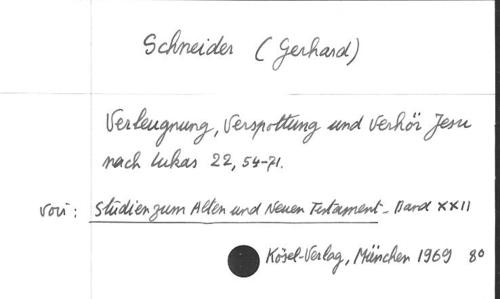 Schneider (Gerhard)
Verleugnung, Verspottung und Verhör Jesu
nach Lukas 22, 54-71.
voir : Studien zum Alten und Neuen Testament - Band XXII
Kösel-Verlag, München 1969 8º